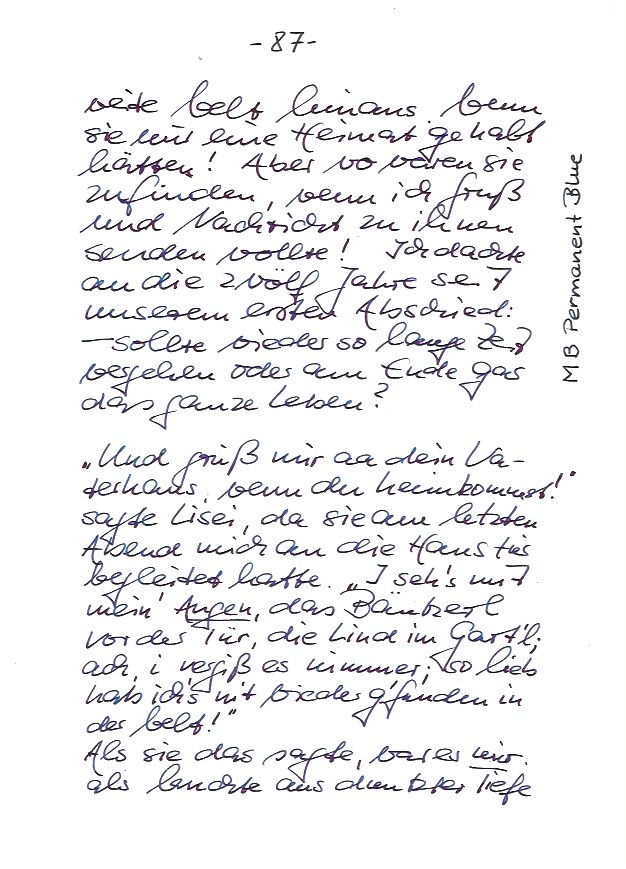 - 87 -
weite Welt hinaus. Wenn
sie nur eine Heimat gehabt
hätten! Aber wo waren sie
zufinden, wenn ich Gruß
und Nachricht zu ihnen
senden wollte! Ich dachte
an die zwölf Jahre seit
unserem ersten Abschied:
— sollte wieder so lange Zeit
vergehen oder am Ende gar
das ganze Leben?
„Und grüß mir aa dein Va-
terhaus, wenn du heimkommst!"
sagte Lisei, da sie am letzten
Abend mich an die Haustür
begleitet hatte. „I seh's mit
mein' Augen, das Bänkerl
vor der Tür, die Lind im Gart'l;
ach, i vergiß es nimmer; so lieb
hab ich's nit wieder g'funden in
der Welt!"
Als sie das sagte, war es mir
als leuchte aus dunkler Tiefe
MB Permanent Blue